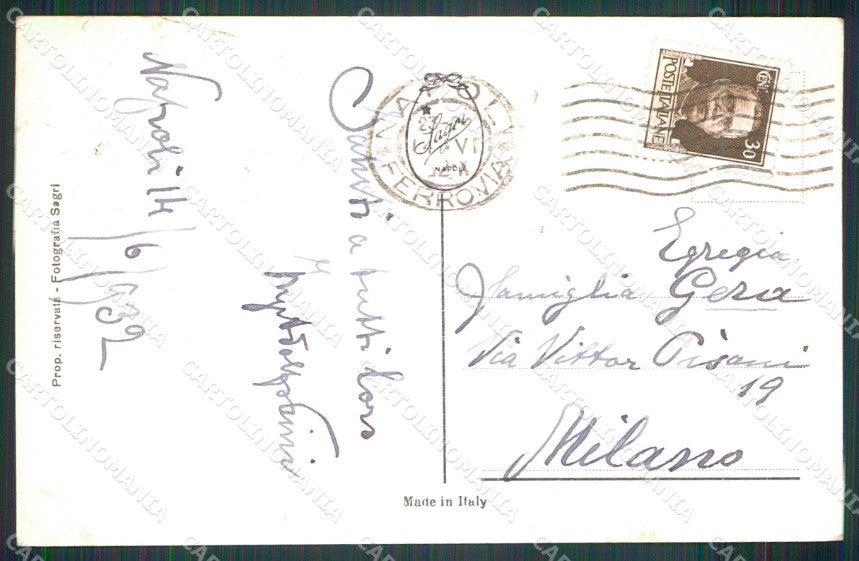 Napoli 14/6/932
Saluti a tutti loro
Prop. riservata - Fotografia Sagri
NAPOLI
FERROVIA
VI
Sagri
NAPOLI
POSTE ITALIANE
CENT. 30
Egregia
famiglia Gera
Via Vittor Pisani
19
Milano
Made in Italy
CARTOLINOMANIA